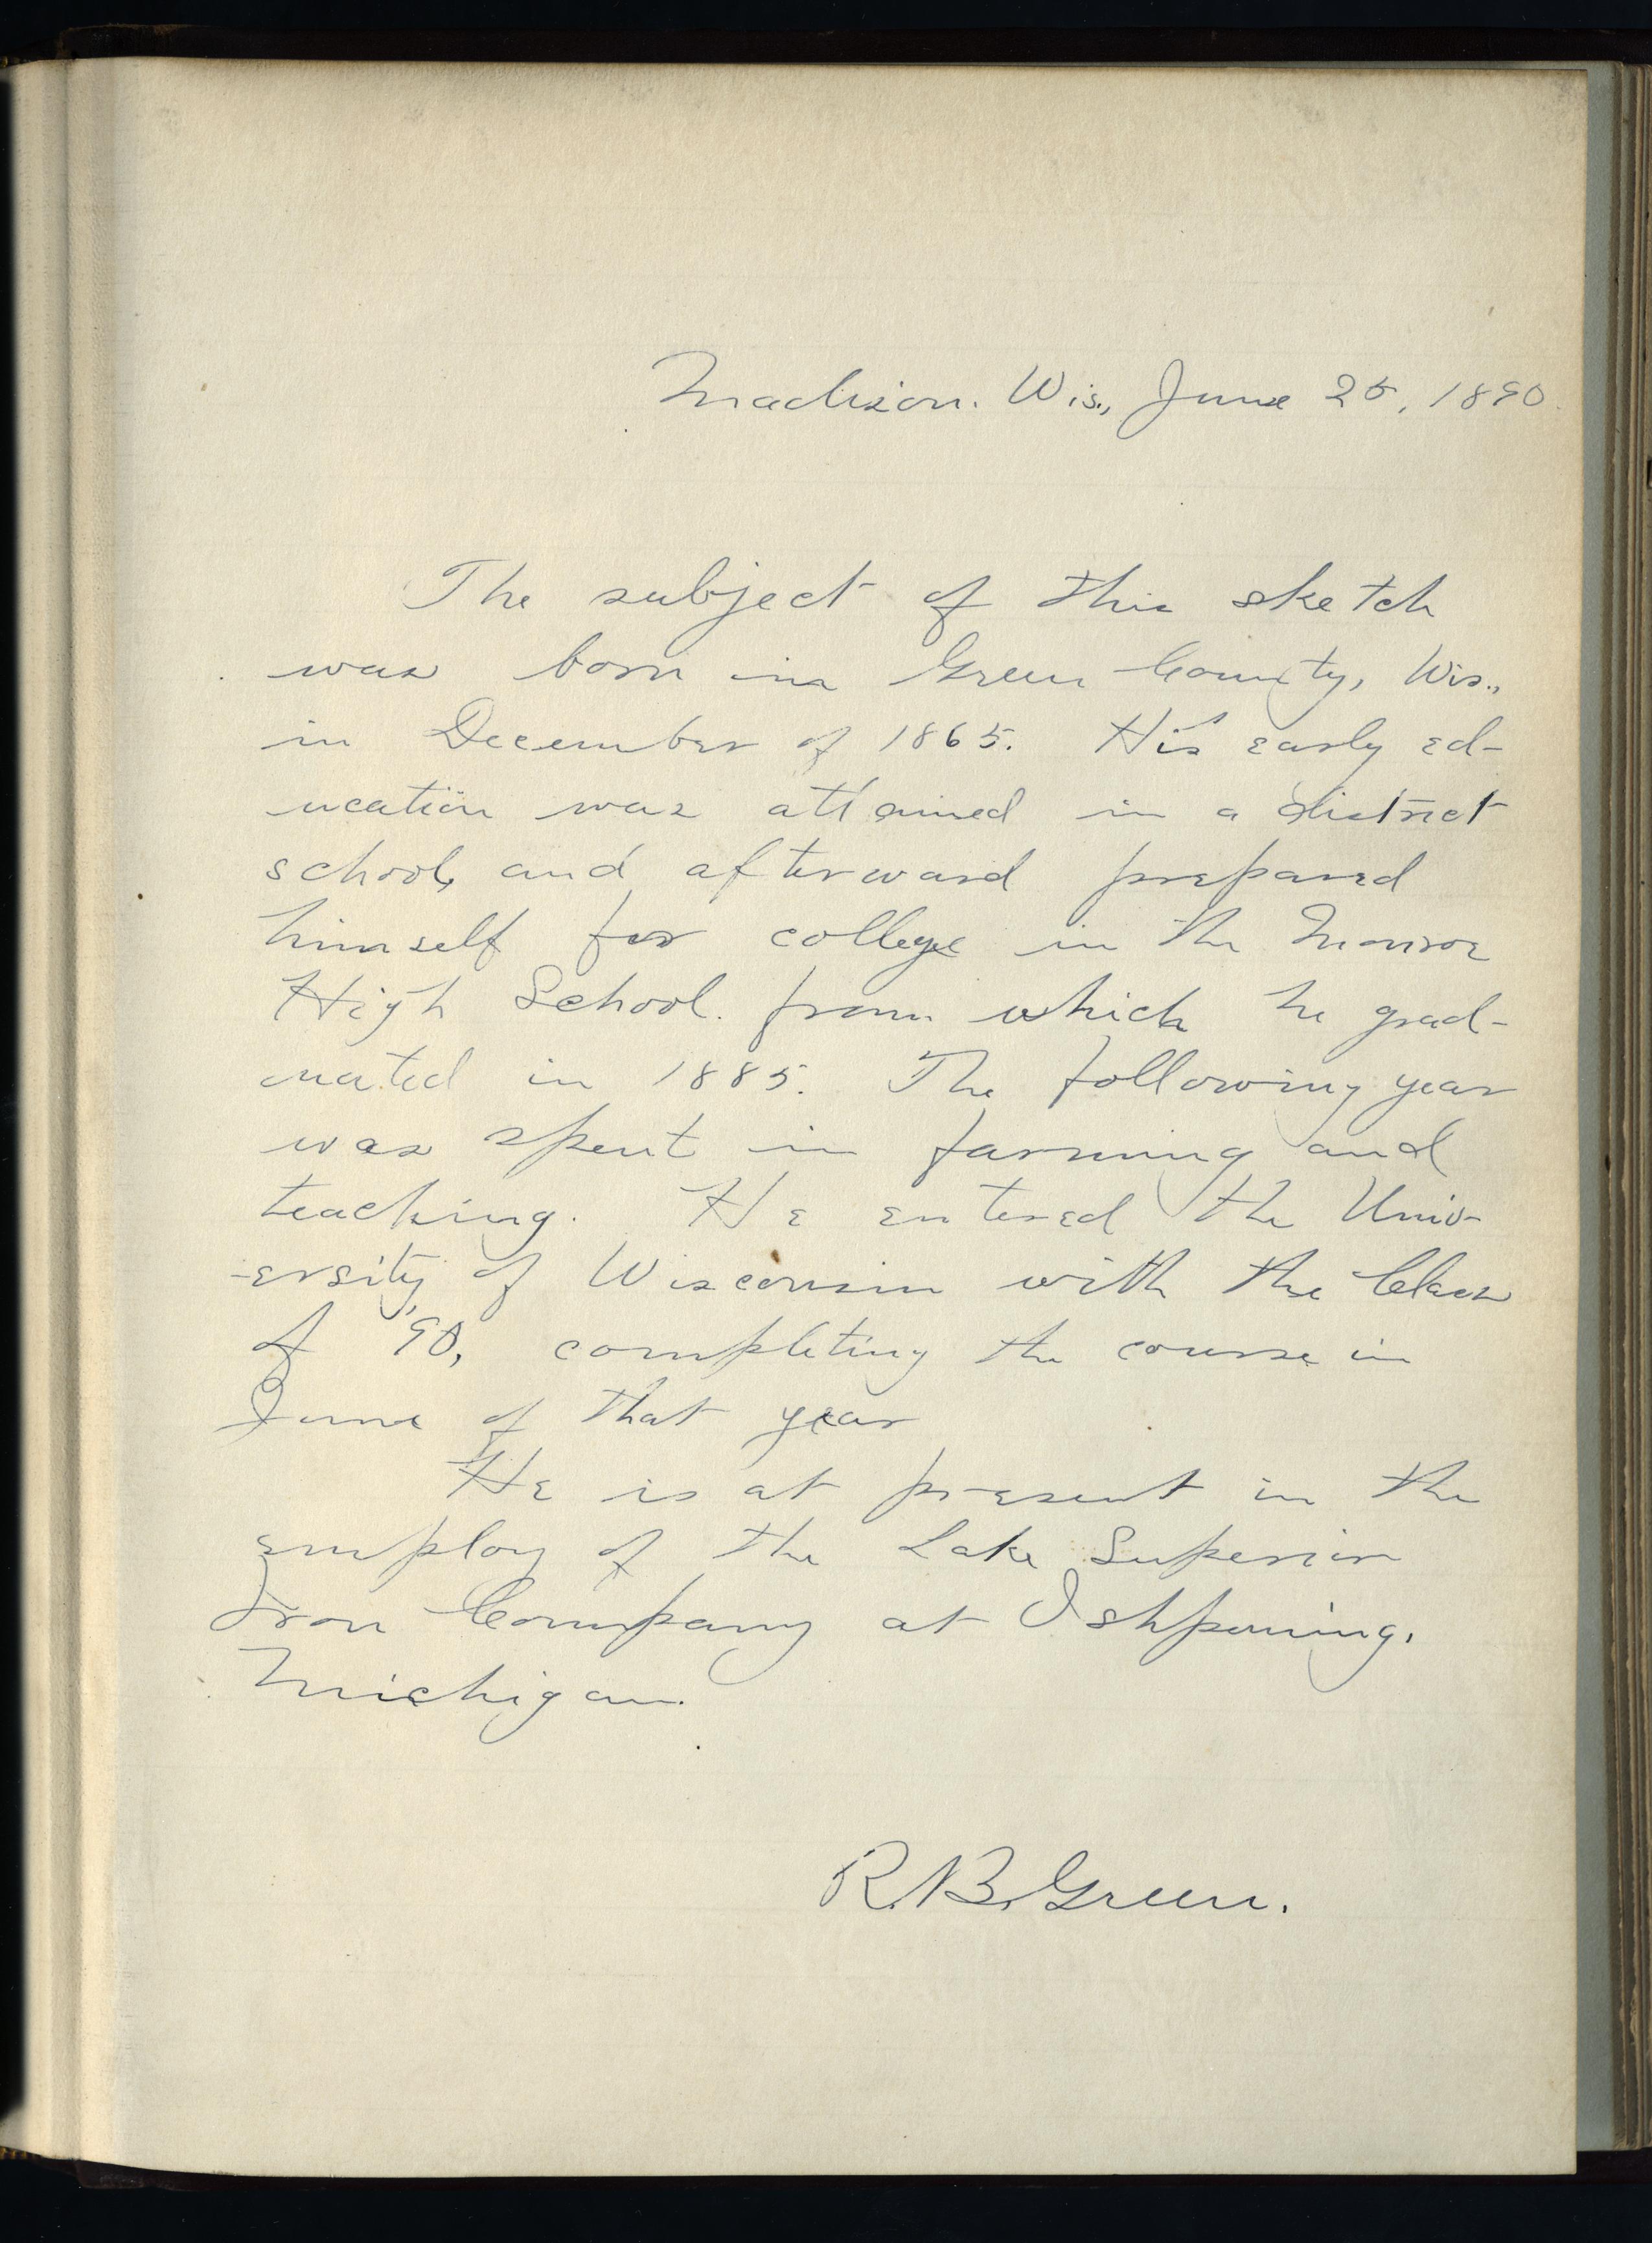 Madison. Wis., June 25, 1890.
The subject of this sketch
was born in Green County, Wis.,
in December of 1865. His early ed-
ucation was attained in a district
school, and afterward prepared
himself for college in the Monroe
High School. from which he grad-
uated in 1885. The following year
was spent in farming and
teaching. He entered the Univ-
-ersity of Wisconsin with the Class
of '90, completing the course in
June of that year
He is at present in the
employ of the Lake Superior
Iron Company at Ishpeming,
Michigan.
R.B. Green.